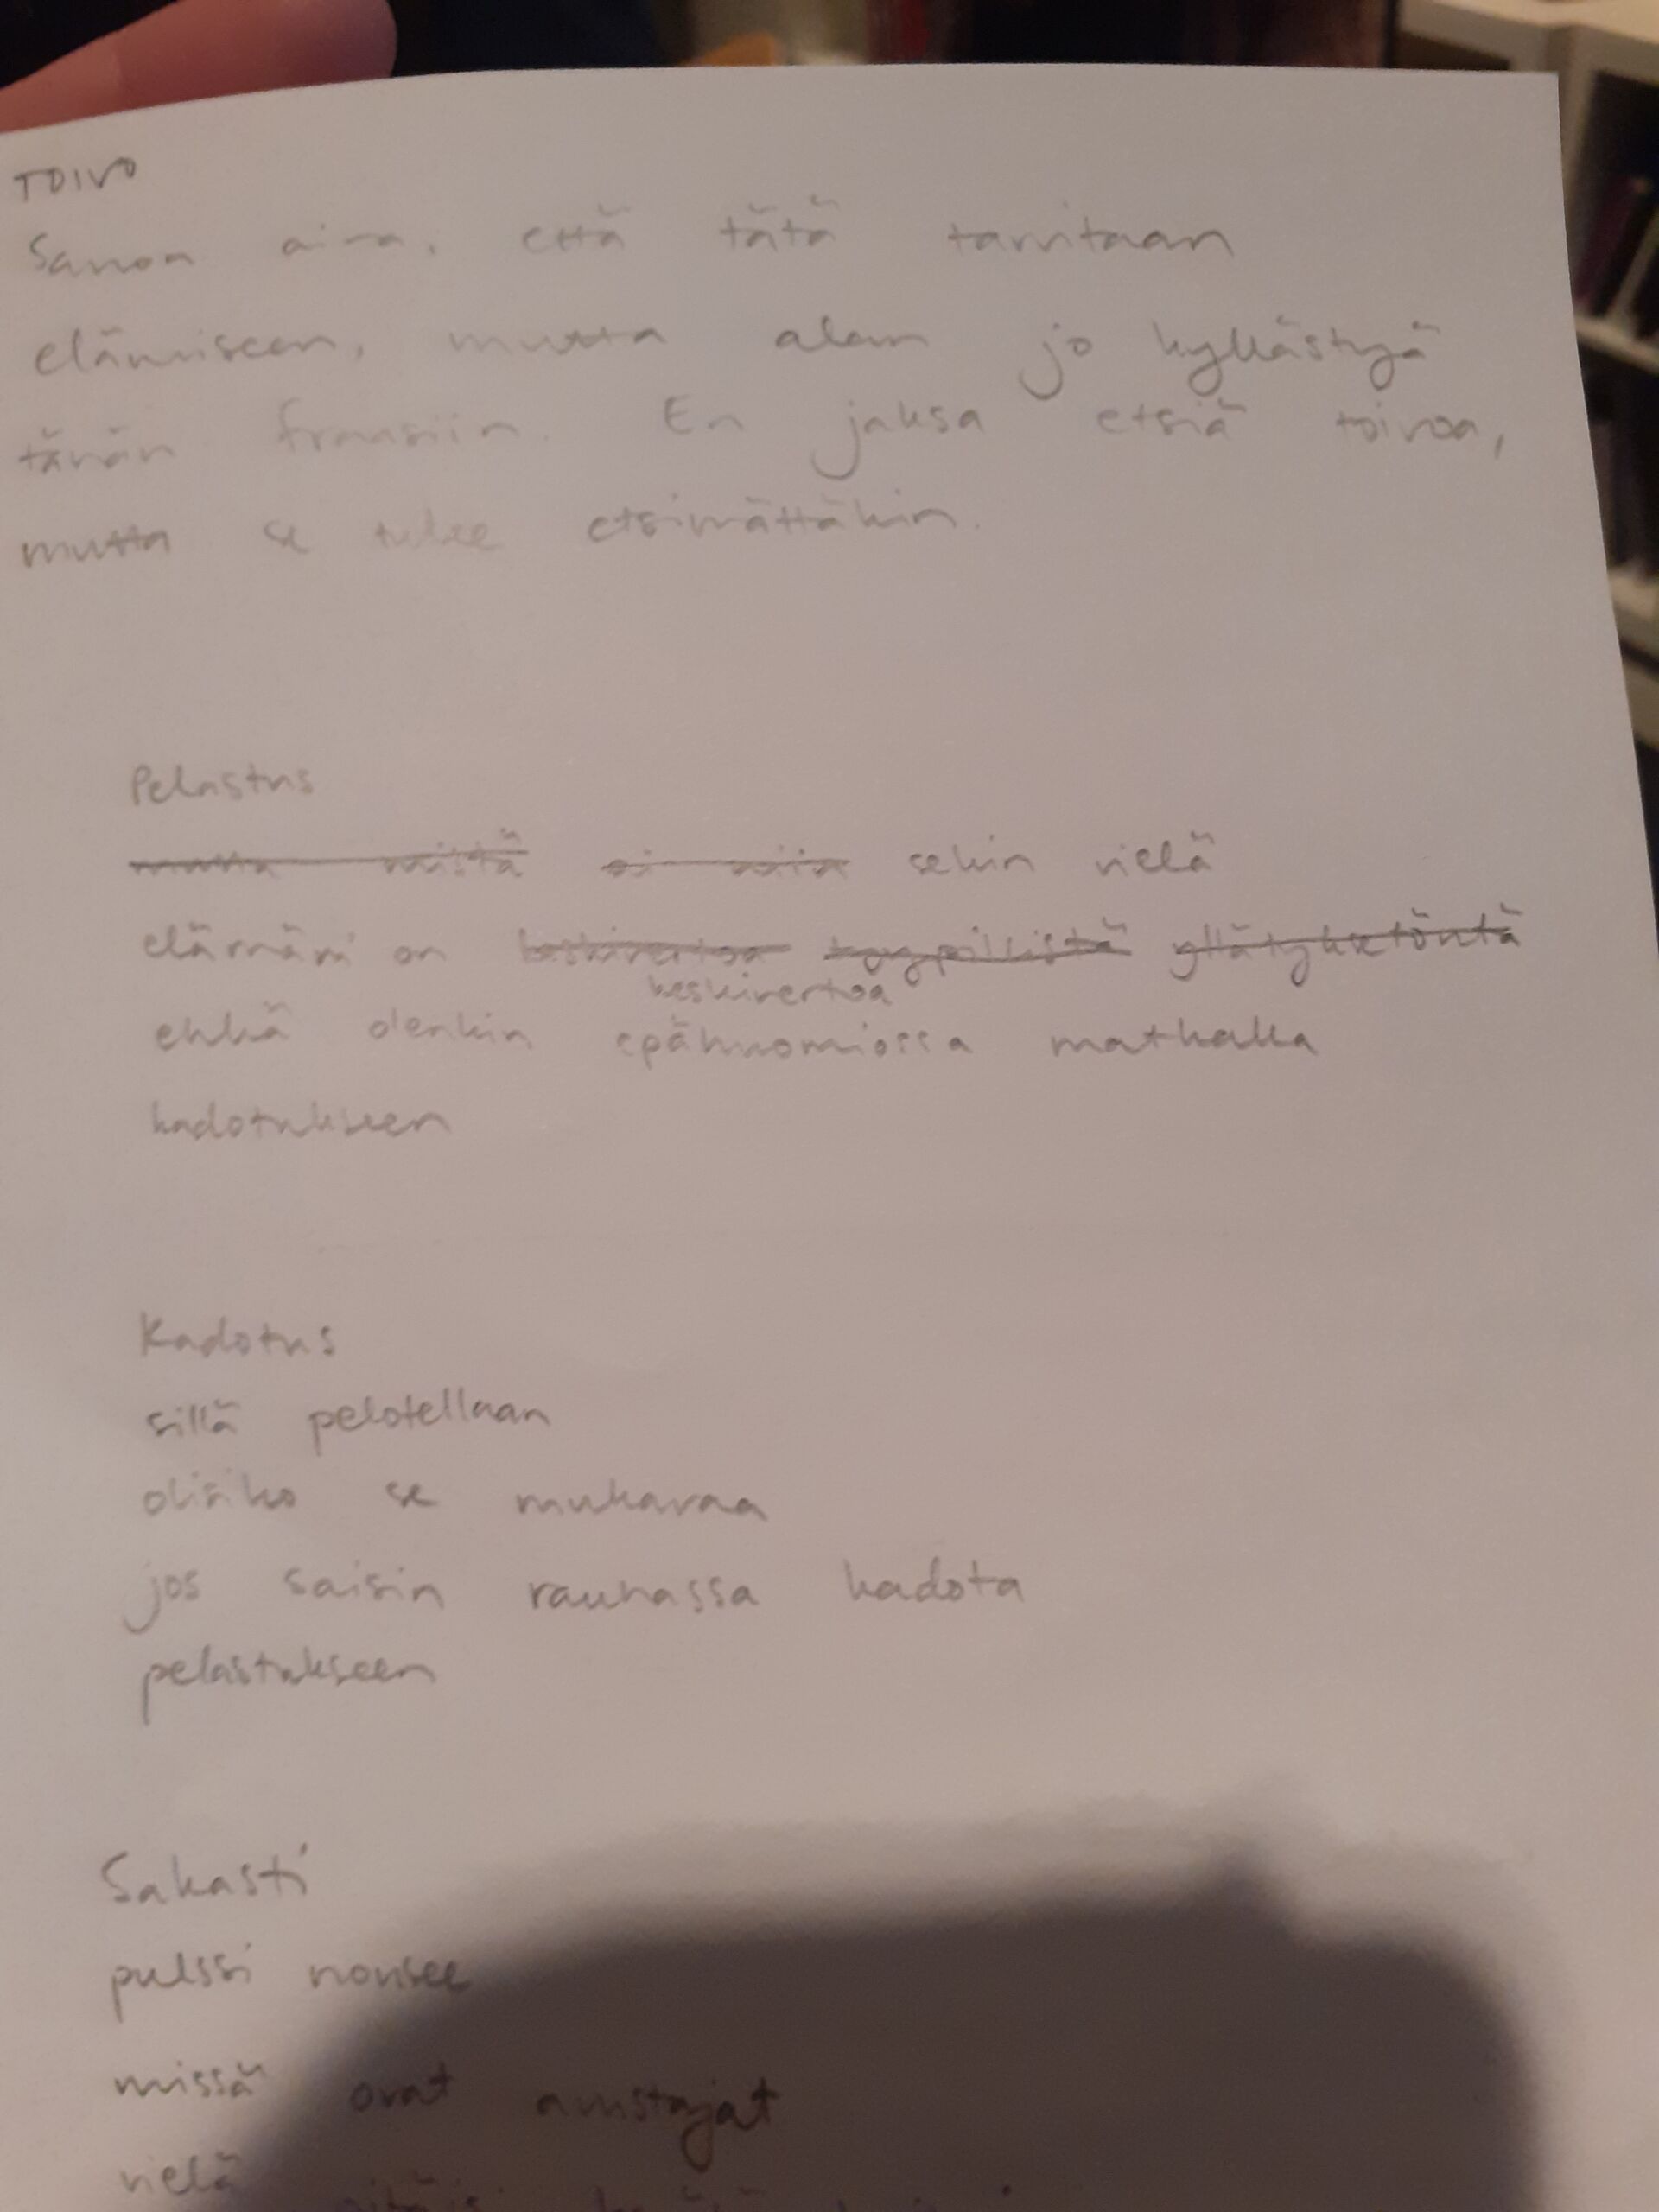 TOIVO
Sanon aina, että tätä tarvitaan
elämiseen, mutta alan jo kyllästyä
tähän fraasiin. En jaksa etsiä toivoa,
mutta se tulee etsimättäkin.
Pelastus
mutta mistä ei niin sekin vielä
elämäni on keskivertoa tyypillistä yllätyksetöntä
keskivertoa
ehkä olenkin epähuomiossa matkalla
kadotukseen
Kadotus
sillä pelotellaan
olisiko se mukavaa
jos saisin rauhassa kadota
pelastukseen
Sakasti
pulssi nousee
missä ovat avustajat
vielä pitäisi